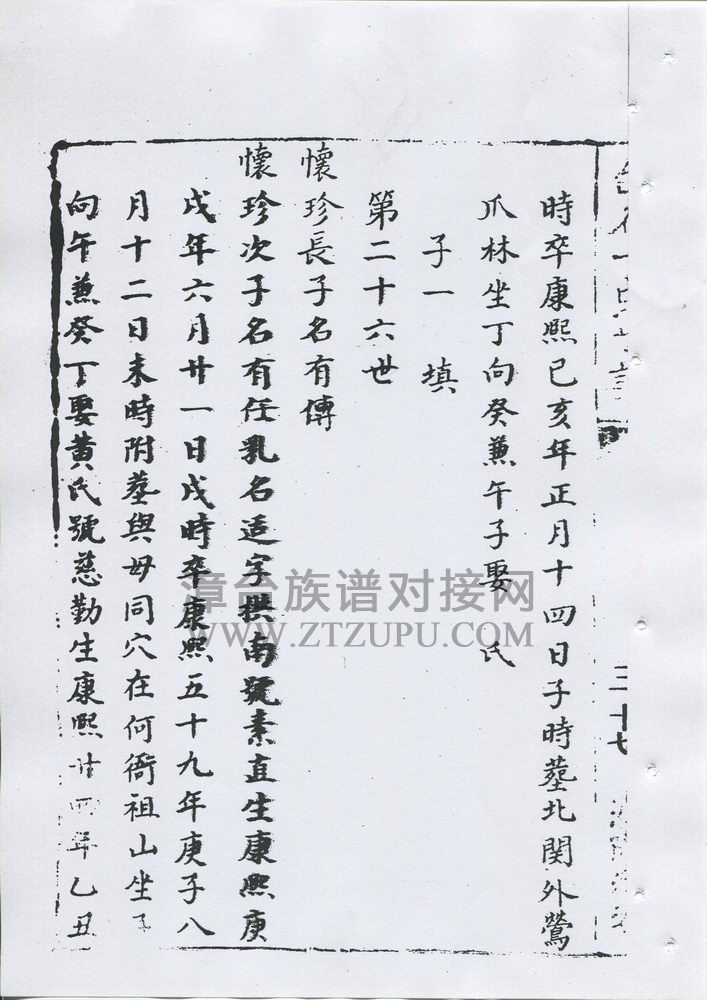 三十七
時卒康熙己亥年正月十四日子時墓北関外鶯
爪林坐丁向癸兼午子娶　氏
子一　填
第二十六世
懷珍長子名有傳
懷珍次子名有任乳名适字撰南號素直生康熙庚
戌年六月廿一日戌時卒康熙五十九年庚子八
月十二日未時附墓與母同穴在何衙祖山坐子
向午兼癸丁娶黃氏號慈勤生康熙廿四年乙丑
漳台族谱对接网
WWW.ZTZUPU.COM